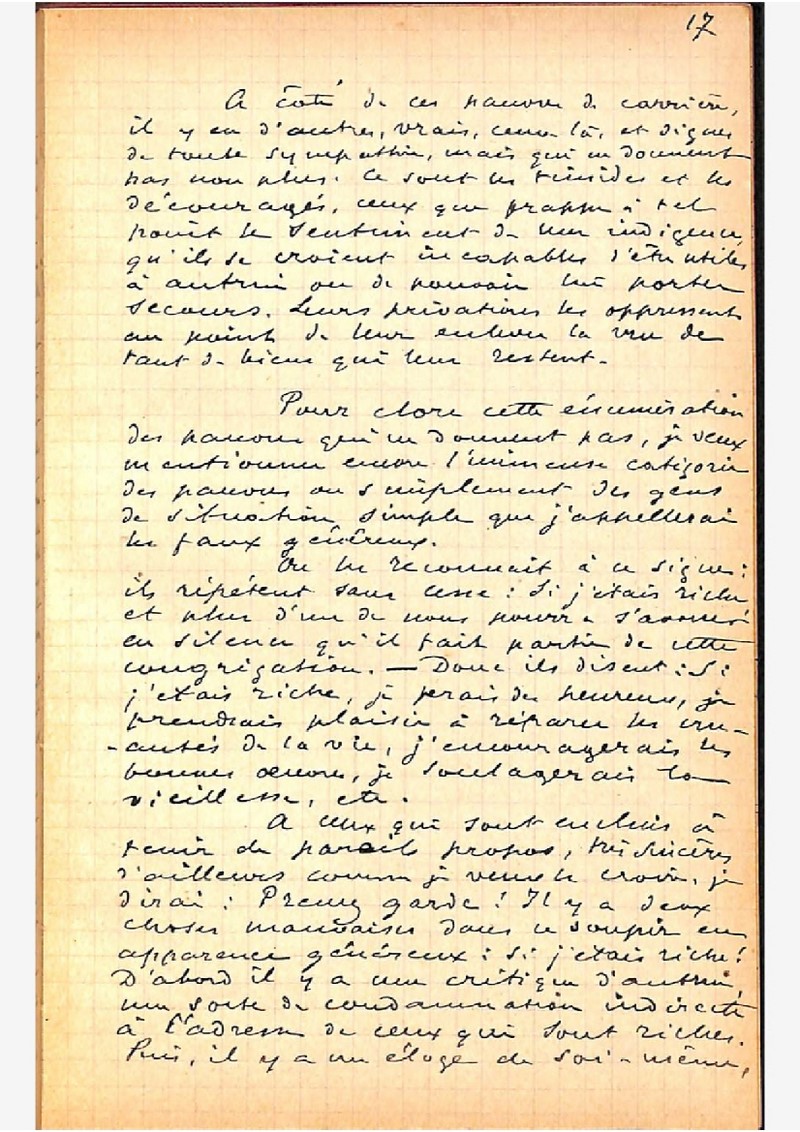 17
A côté de ces pauvres de carrière,
il y en a d'autres, vrais, ceux-là, et dignes
de toute sympathie, mais qui ne donnent
pas non plus. Ce sont les timides et les
découragés, ceux que frappe à tel
point le sentiment de leur indigence,
qu'ils se croient incapables d'être utiles
à autrui ou de pouvoir lui porter
secours. Leurs privations les oppressent
au point de leur enlever la vue de
tant de biens qui leur restent.
Pour clore cette énumération
des pauvres qui ne donnent pas, je veux
mentionner encore l'immense catégorie
des pauvres ou simplement des gens
de situation simple que j'appellerai
les faux généreux.
On les reconnait à ce signe:
ils répètent sans cesse : Si j'étais riche
et plus d'un de nous pourra s'avouer
en silence qu'il fait partie de cette
congrégation. — Donc ils disent : Si
j'étais riche, je ferais des heureux, je
prendrais plaisir à réparer les cru-
-autés de la vie, j'encouragerais les
bonnes œuvres, je soulagerais la
vieillesse, etc.
A ceux qui sont enclins à
tenir de pareils propos, très sincères
d'ailleurs comme je veux le croire, je
dirai : Prenez garde ! Il y a deux
choses mauvaises dans ce soupir en
apparence généreux : Si j'étais riche !
D'abord il y a une critique d'autrui,
une sorte de condamnation indirecte
à l'adresse de ceux qui sont riches.
Puis, il y a un éloge de soi-même,